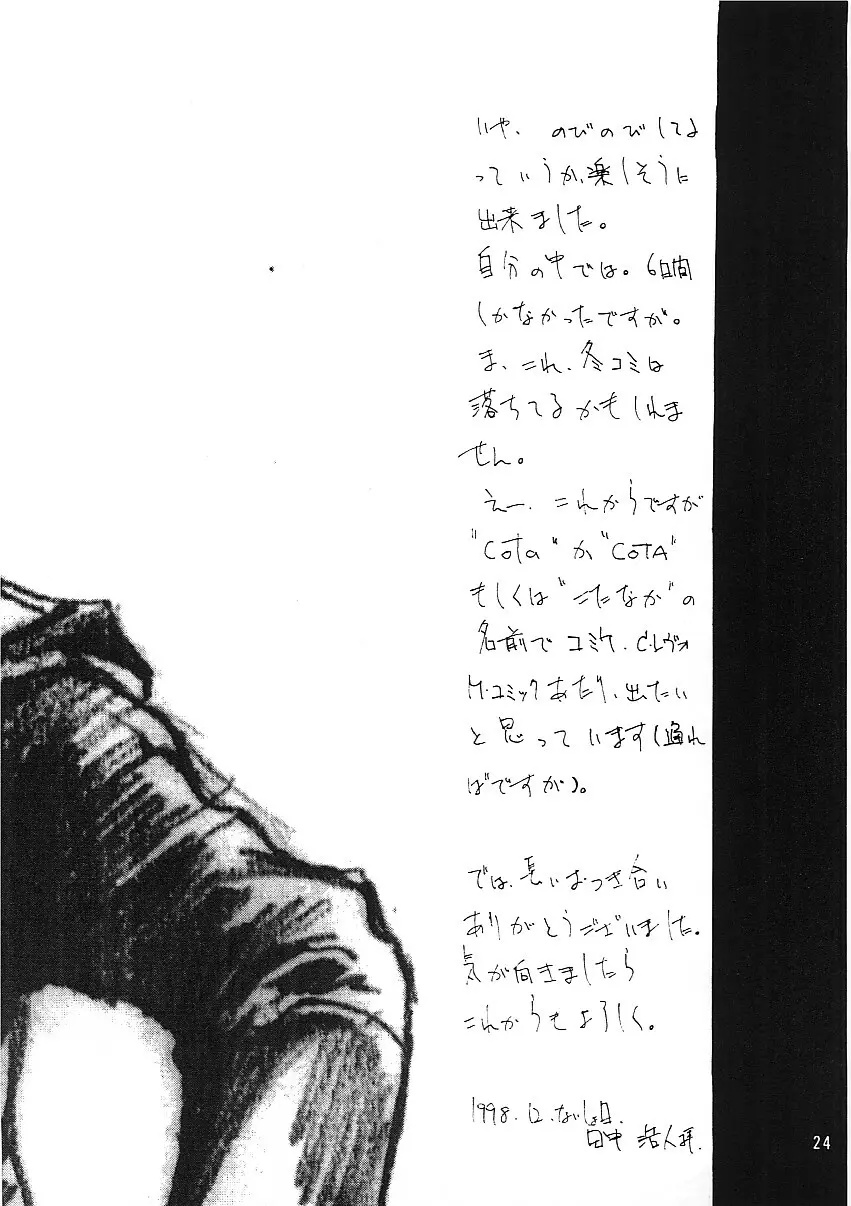 いや、のびのびしてよ
っていうか、楽しそうに
出来ました。
自分の中では。6日間
しかなかったですが。
ま、これ、冬コミは
落ちてるかもしれま
せん。
えー、これからですが
"Cota"か"COTA"
もしくは"こたなか"の
名前でコミケ、C・レヴォ
M・コミックあたり、出たい
と思っています(通れ
ばですが)。
では、長いおつき合い
ありがとうございました。
気が向きましたら
これからもよろしく。
1998.12.
田中
24